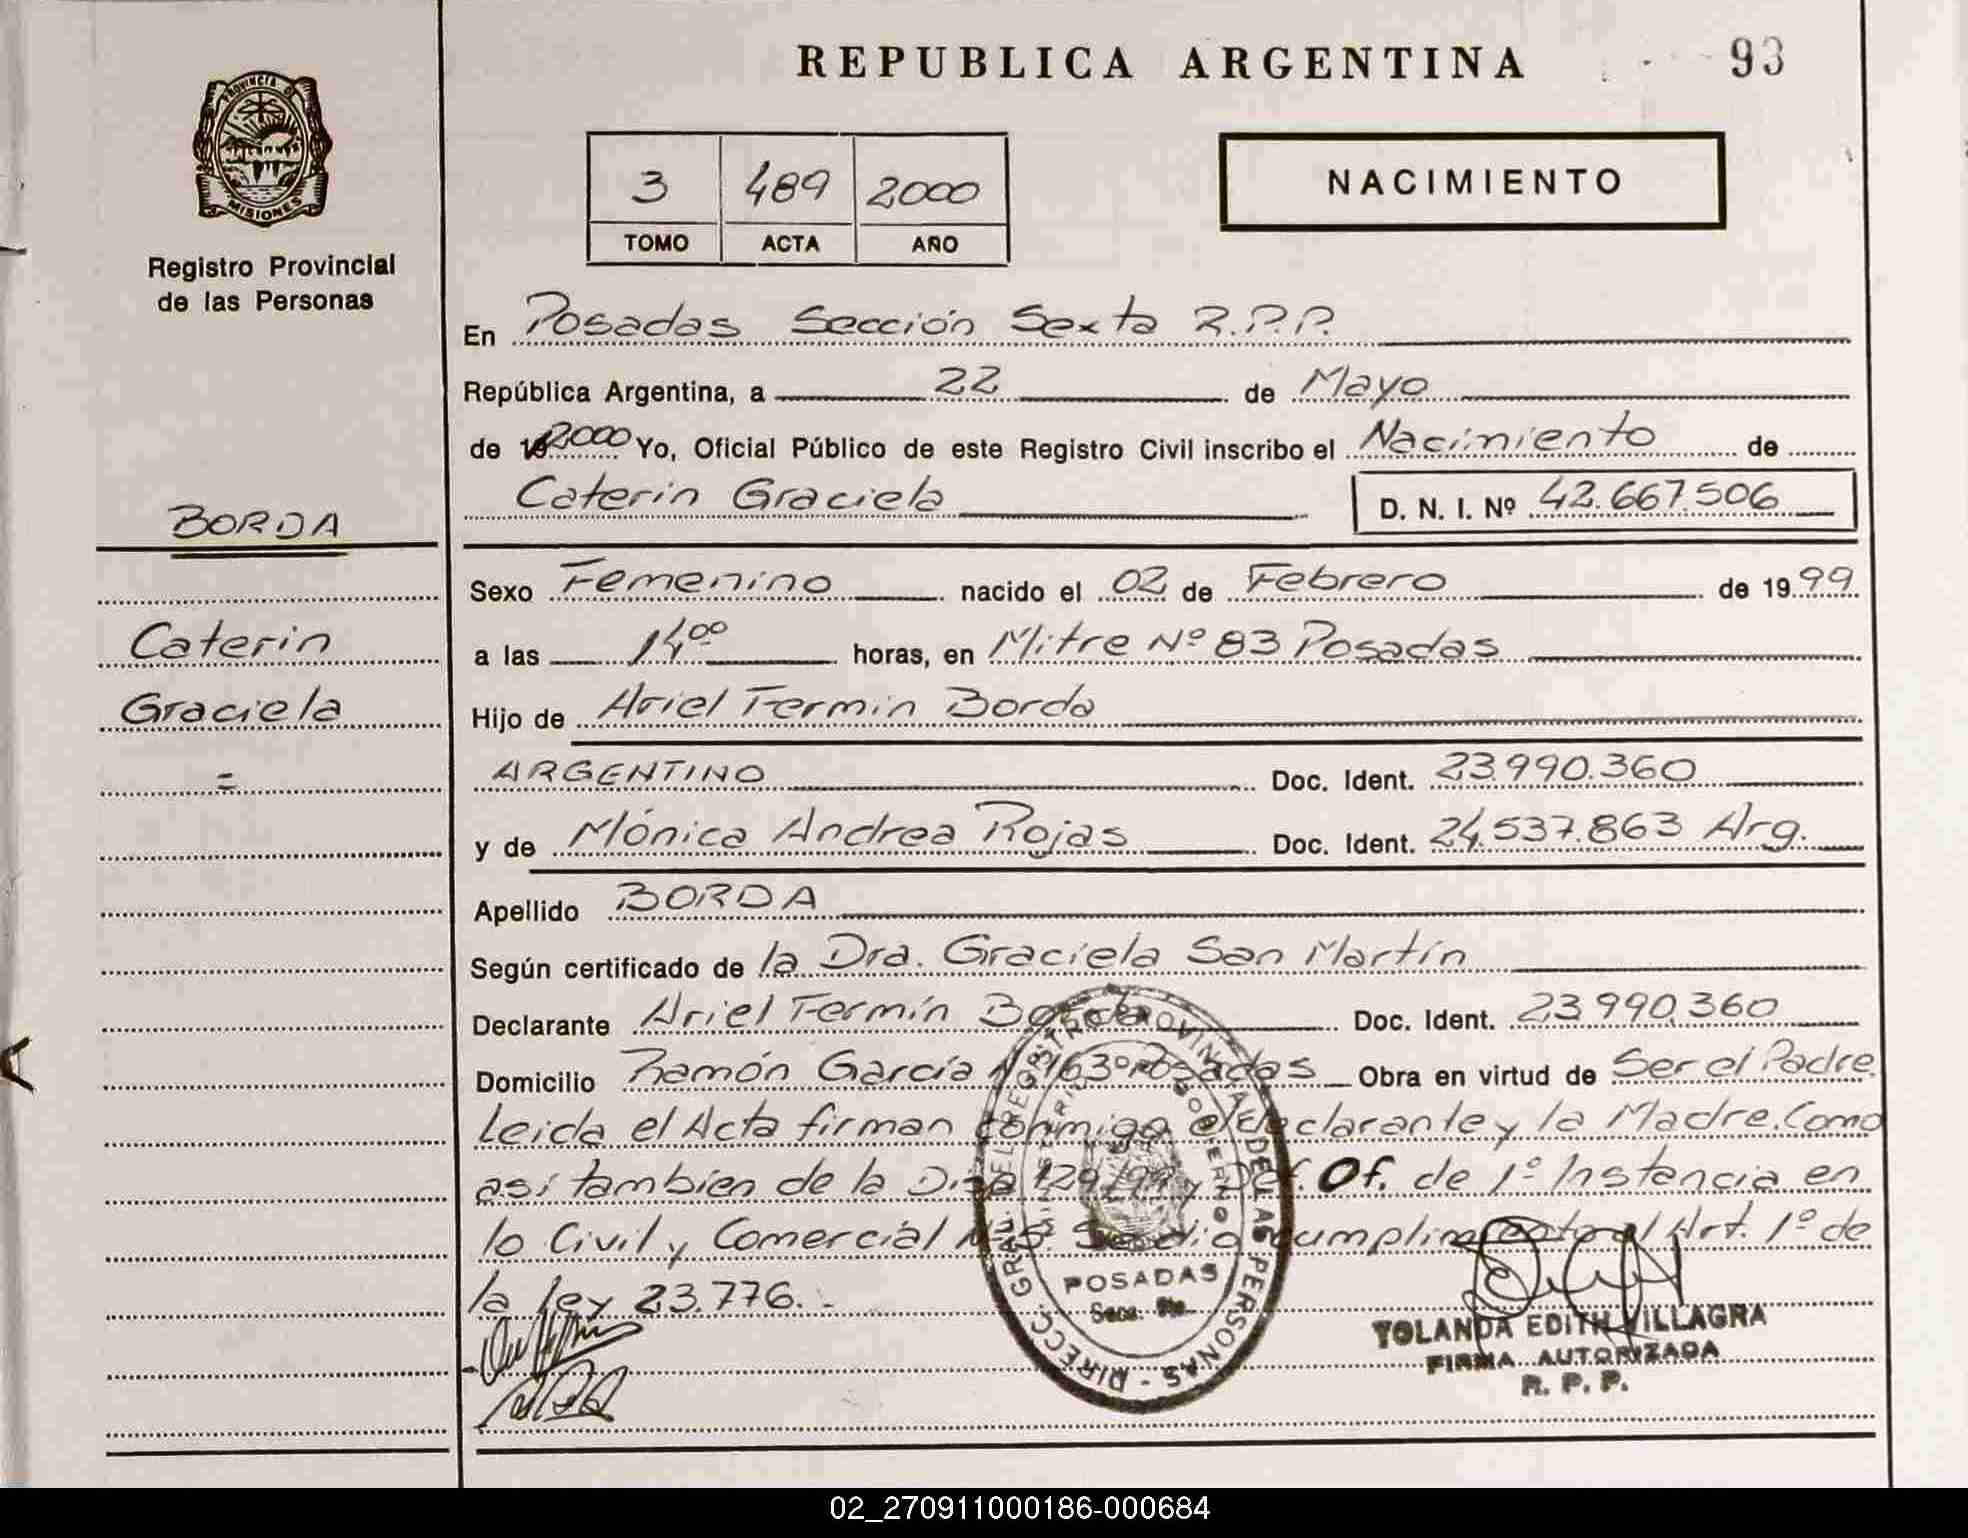 REPUBLICA ARGENTINA
93
PROVINCIA D
MISIONES
Registro Provincial
de las Personas
3 489 2000
TOMO ACTA AÑO
NACIMIENTO
En Posadas Sección Sexta R.P.P.
República Argentina, a 22 de Mayo
de 2000 Yo, Oficial Público de este Registro Civil inscribo el Nacimiento de
Caterin Graciela D. N. I. Nº 42.667.506
BORDA
Caterin
Graciela
=
Sexo Femenino nacido el 02 de Febrero de 1999
a las 14,00 horas, en Mitre Nº 83 Posadas
Hijo de Ariel Fermin Borda
ARGENTINO Doc. Ident. 23.990.360
y de Mónica Andrea Rojas Doc. Ident. 24.537.863 Arg.
Apellido BORDA
Según certificado de la Dra. Graciela San Martín
Declarante Ariel Fermín Borda Doc. Ident. 23.990.360
Domicilio Ramón García Posadas Obra en virtud de Ser el Padre.
Leida el Acta firman conmigo el declarante y la Madre. Como
asi tambien de la 129/99 Def. Of. de 1º Instancia en
lo Civil y Comercial Se dio cumplimiento al Art. 1º de
la ley 23.776.-
DIRECC. GRAL. DEL REGISTRO PROVINCIAL DE LAS PERSONAS
MINISTERIO DE GOBIERNO
POSADAS
Secc. 6ta.
YOLANDA EDITH VILLAGRA
FIRMA AUTORIZADA
R. P. P.
02_270911000186-000684